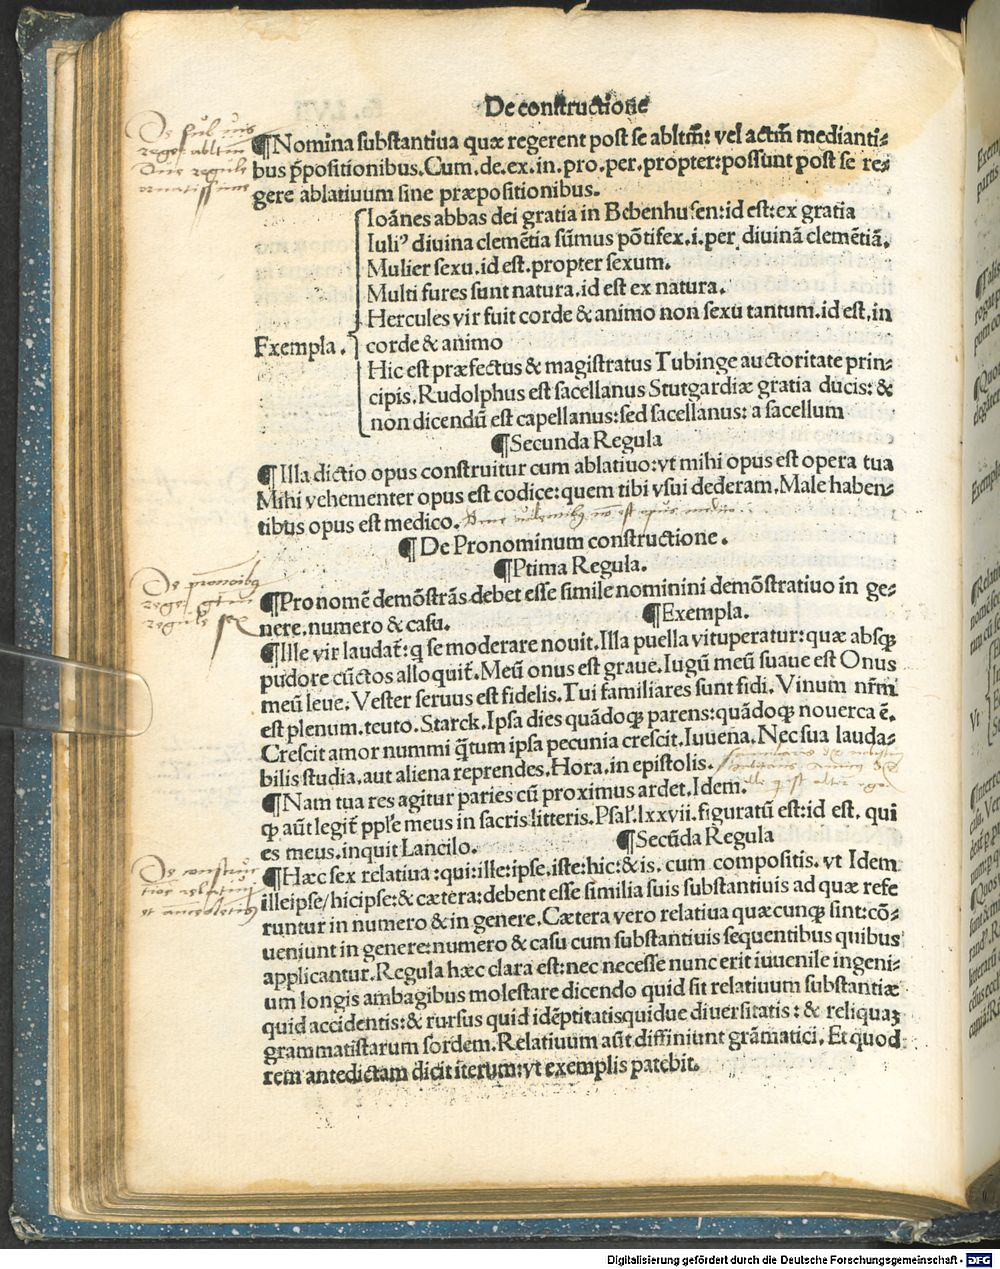 De constructione
¶Nomina substantiua quæ regerent post se abltm̄: vel actm̄ medianti⸗
bus p̄positionibus. Cum. de. ex. in. pro. per. propter: possunt post se re⸗
gere ablatiuum sine præpositionibus.
Ioānes abbas dei gratia in Bebenhusen: id est: ex gratia
Iuliꝰ diuina clemētia sūmus pōtifex. i. per diuinā clemētiā.
Mulier sexu. id est. propter sexum.
Multi fures sunt natura. id est ex natura.
Hercules vir fuit corde & animo non sexu tantum. id est, in
Exempla. corde & animo
Hic est præfectus & magistratus Tubinge auctoritate prin⸗
cipis. Rudolphus est sacellanus Stutgardiæ gratia ducis: &
non dicendū est capellanus: sed sacellanus: a sacellum
¶Secunda Regula
¶Illa dictio opus construitur cum ablatiuo: vt mihi opus est opera tua
Mihi vehementer opus est codice: quem tibi vsui dederam. Male haben⸗
tibus opus est medico.
¶De Pronominum constructione.
¶Ptima Regula.
¶Pronomē demōstrās debet esse simile nominini demōstratiuo in ge⸗
nere. numero & casu. ¶Exempla.
¶Ille vir laudat̄: q se moderare nouit. Illa puella vituperatur: quæ absqꝫ
pudore cūctos alloquit̄. Meū onus est graue. Iugū meū suaue est Onus
meū leue. Vester seruus est fidelis. Tui familiares sunt fidi. Vinum nr̄m
est plenum. teuto. Starck. Ipsa dies quādoqꝫ parens: quādoqꝫ nouerca ē.
Crescit amor nummi q̄tum ipsa pecunia crescit. Iuuena. Nec sua lauda⸗
bilis studia. aut aliena reprendes. Hora. in epistolis.
¶Nam tua res agitur paries cū proximus ardet. Idem.
qꝫ aūt legit̄ pple meus in sacris litteris. Psal. lxxvii. figuratū est: id est. qui
es meus. inquit Lancilo. ¶Secūda Regula
¶Hæc sex relatiua: qui: ille: ipse. iste: hic: & is. cum compositis. vt Idem
illeipse/hicipse: & cætera: debent esse similia suis substantiuis ad quæ refe
runtur in numero & in genere. Cætera vero relatiua quæcunqꝫ sint: cō⸗
ueniunt in genere: numero & casu cum substantiuis sequentibus quibus
applicantur. Regula hæc clara est: nec necesse nunc erit iuuenile ingeni⸗
um longis ambagibus molestare dicendo quid sit relatiuum substantiæ
quid accidentis: & rursus quid idēptitatisquidue diuersitatis: & reliquaꝫ
grammatistarum sordem. Relatiuum aūt diffiniunt grāmatici. Et quod
rem antedictam dicit iterum: vt exemplis patebit.
Digitalisierung gefördert durch die Deutsche Forschungsgemeinschaft - DFG